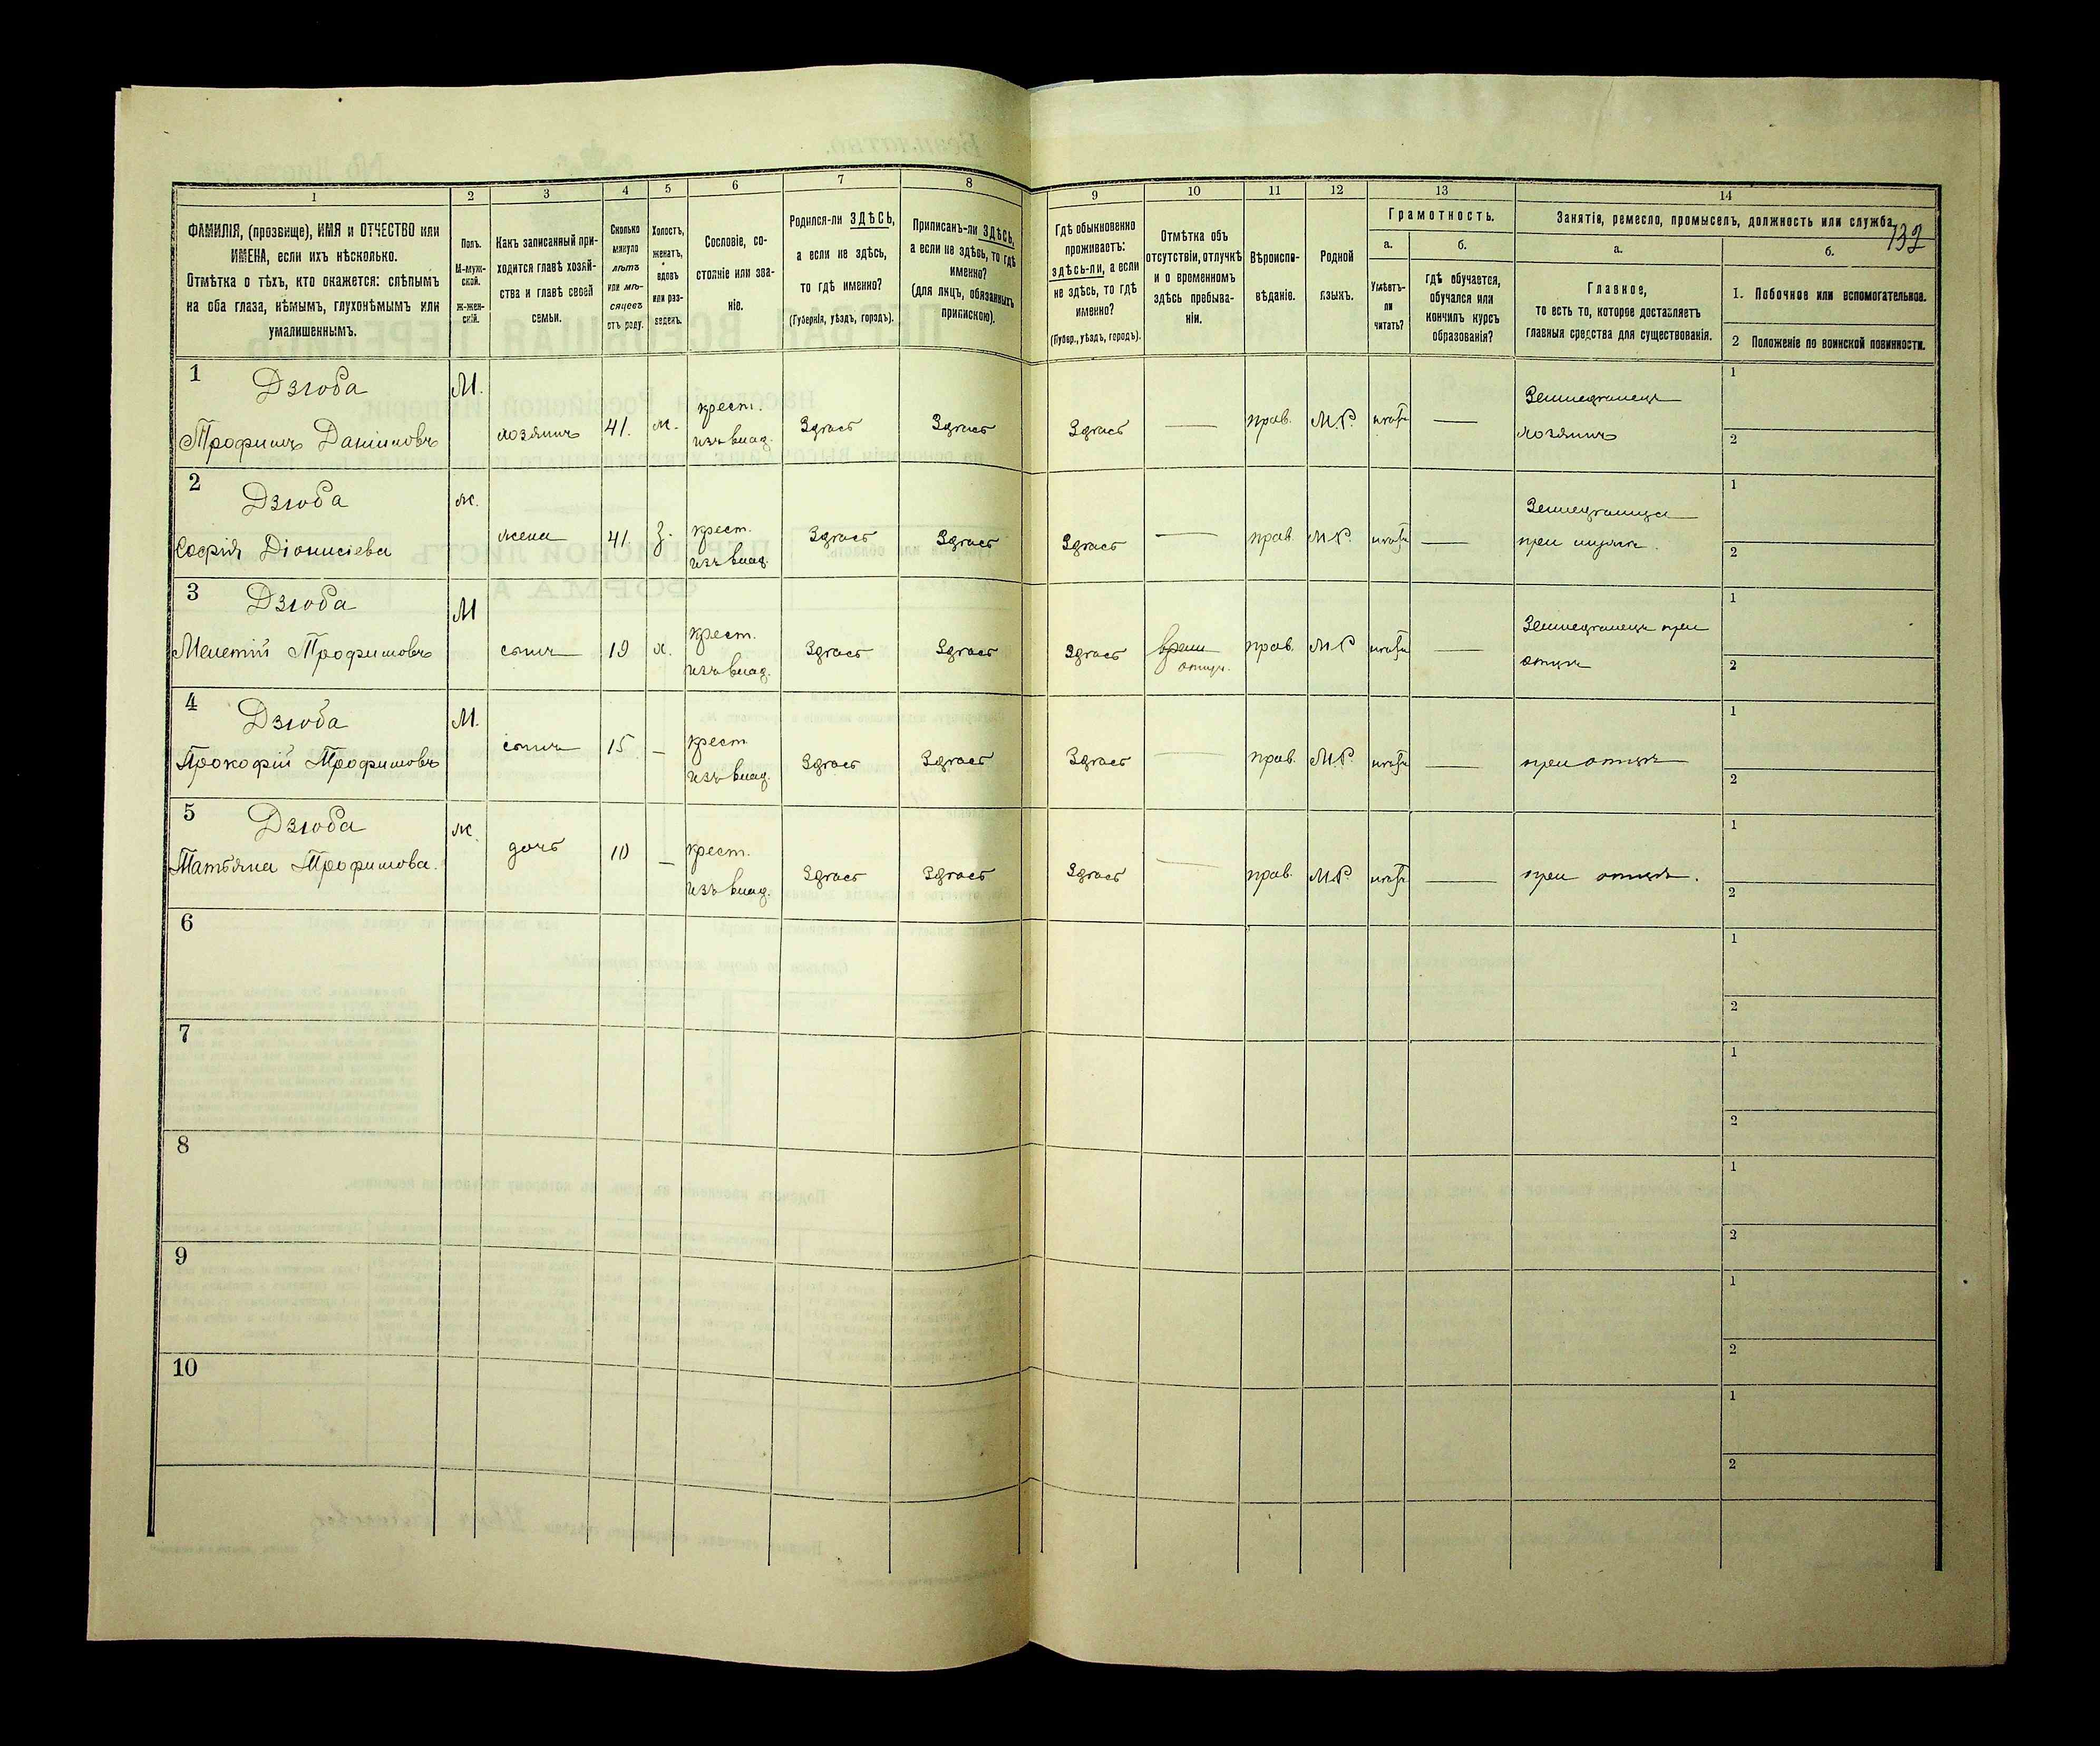 132
1 2 3 4 5 6 7 8 9 10 11 12 13 14
ФАМИЛІЯ, (прозвище), ИМЯ и ОТЧЕСТВО или
ИМЕНА, если ихъ нѣсколько.
Отмѣтка о тѣхъ, кто окажется: слѣпымъ
на оба глаза, нѣмымъ, глухонѣмымъ или
умалишеннымъ.
Полъ.
М-муж-
ской.
ж-жен-
скій.
Какъ записанный при-
ходится главѣ хозяй-
ства и главѣ своей
семьи.
Сколько
минуло
лѣтъ
или мѣ-
сяцевъ
отъ роду.
Холостъ,
женатъ,
вдовъ
или раз-
веденъ.
Сословіе, со-
стояніе или зва-
ніе.
Родился-ли ЗДѢСЬ,
а если не здѣсь,
то гдѣ именно?
(Губернія, уѣздъ, городъ).
Приписанъ-ли ЗДѢСЬ,
а если не здѣсь, то гдѣ
именно?
(для лицъ, обязанныхъ
припискою).
Гдѣ обыкновенно
проживаетъ:
здѣсь-ли, а если
не здѣсь, то гдѣ
именно?
(Губер., уѣздъ, городъ).
Отмѣтка объ
отсутствіи, отлучкѣ
и о временномъ
здѣсь пребыва-
ніи.
Вѣроиспо-
вѣданіе.
Родной
языкъ.
Грамотность.
а.
Умѣетъ-
ли
читать?
б.
гдѣ обучается,
обучался или
кончилъ курсъ
образованія?
Занятіе, ремесло, промыселъ, должность или служба.
а.
Главное,
то есть то, которое доставляетъ
главныя средства для существованія.
б.
1. Побочное или вспомогательное.
2 Положеніе по воинской повинности.
1 Дзюба М. крест. Земледѣлецъ 1
Трофимъ Даниловъ хозяинъ 41. ж. изъ влад. Здѣсь Здѣсь Здѣсь — прав. М.Р. нѣтъ — хозяинъ 2
2 Дзюба ж. Земледѣлица 1
Софія Діонисіева жена 41 з. крест. изъ влад. Здѣсь Здѣсь Здѣсь — прав. М.Р. нѣтъ — при мужѣ. 2
3 Дзюба М крест. Земледѣлецъ при 1
Мелетій Трофимовъ сынъ 19 х. изъ влад. Здѣсь Здѣсь Здѣсь врем. отлуч. прав. М.Р нѣтъ — отцѣ 2
4 Дзюба М. крест 1
Прокофій Трофимовъ сынъ 15 — изъ влад. Здѣсь Здѣсь Здѣсь — прав. М.Р. нѣтъ — при отцѣ 2
5 Дзюба ж. крест. 1
Татьяна Трофимова. дочь 10 — изъ влад. Здѣсь Здѣсь Здѣсь — прав. М.Р. нѣтъ — при отцѣ. 2
6 1
2
7 1
2
8 1
2
9 1
2
10 1
2